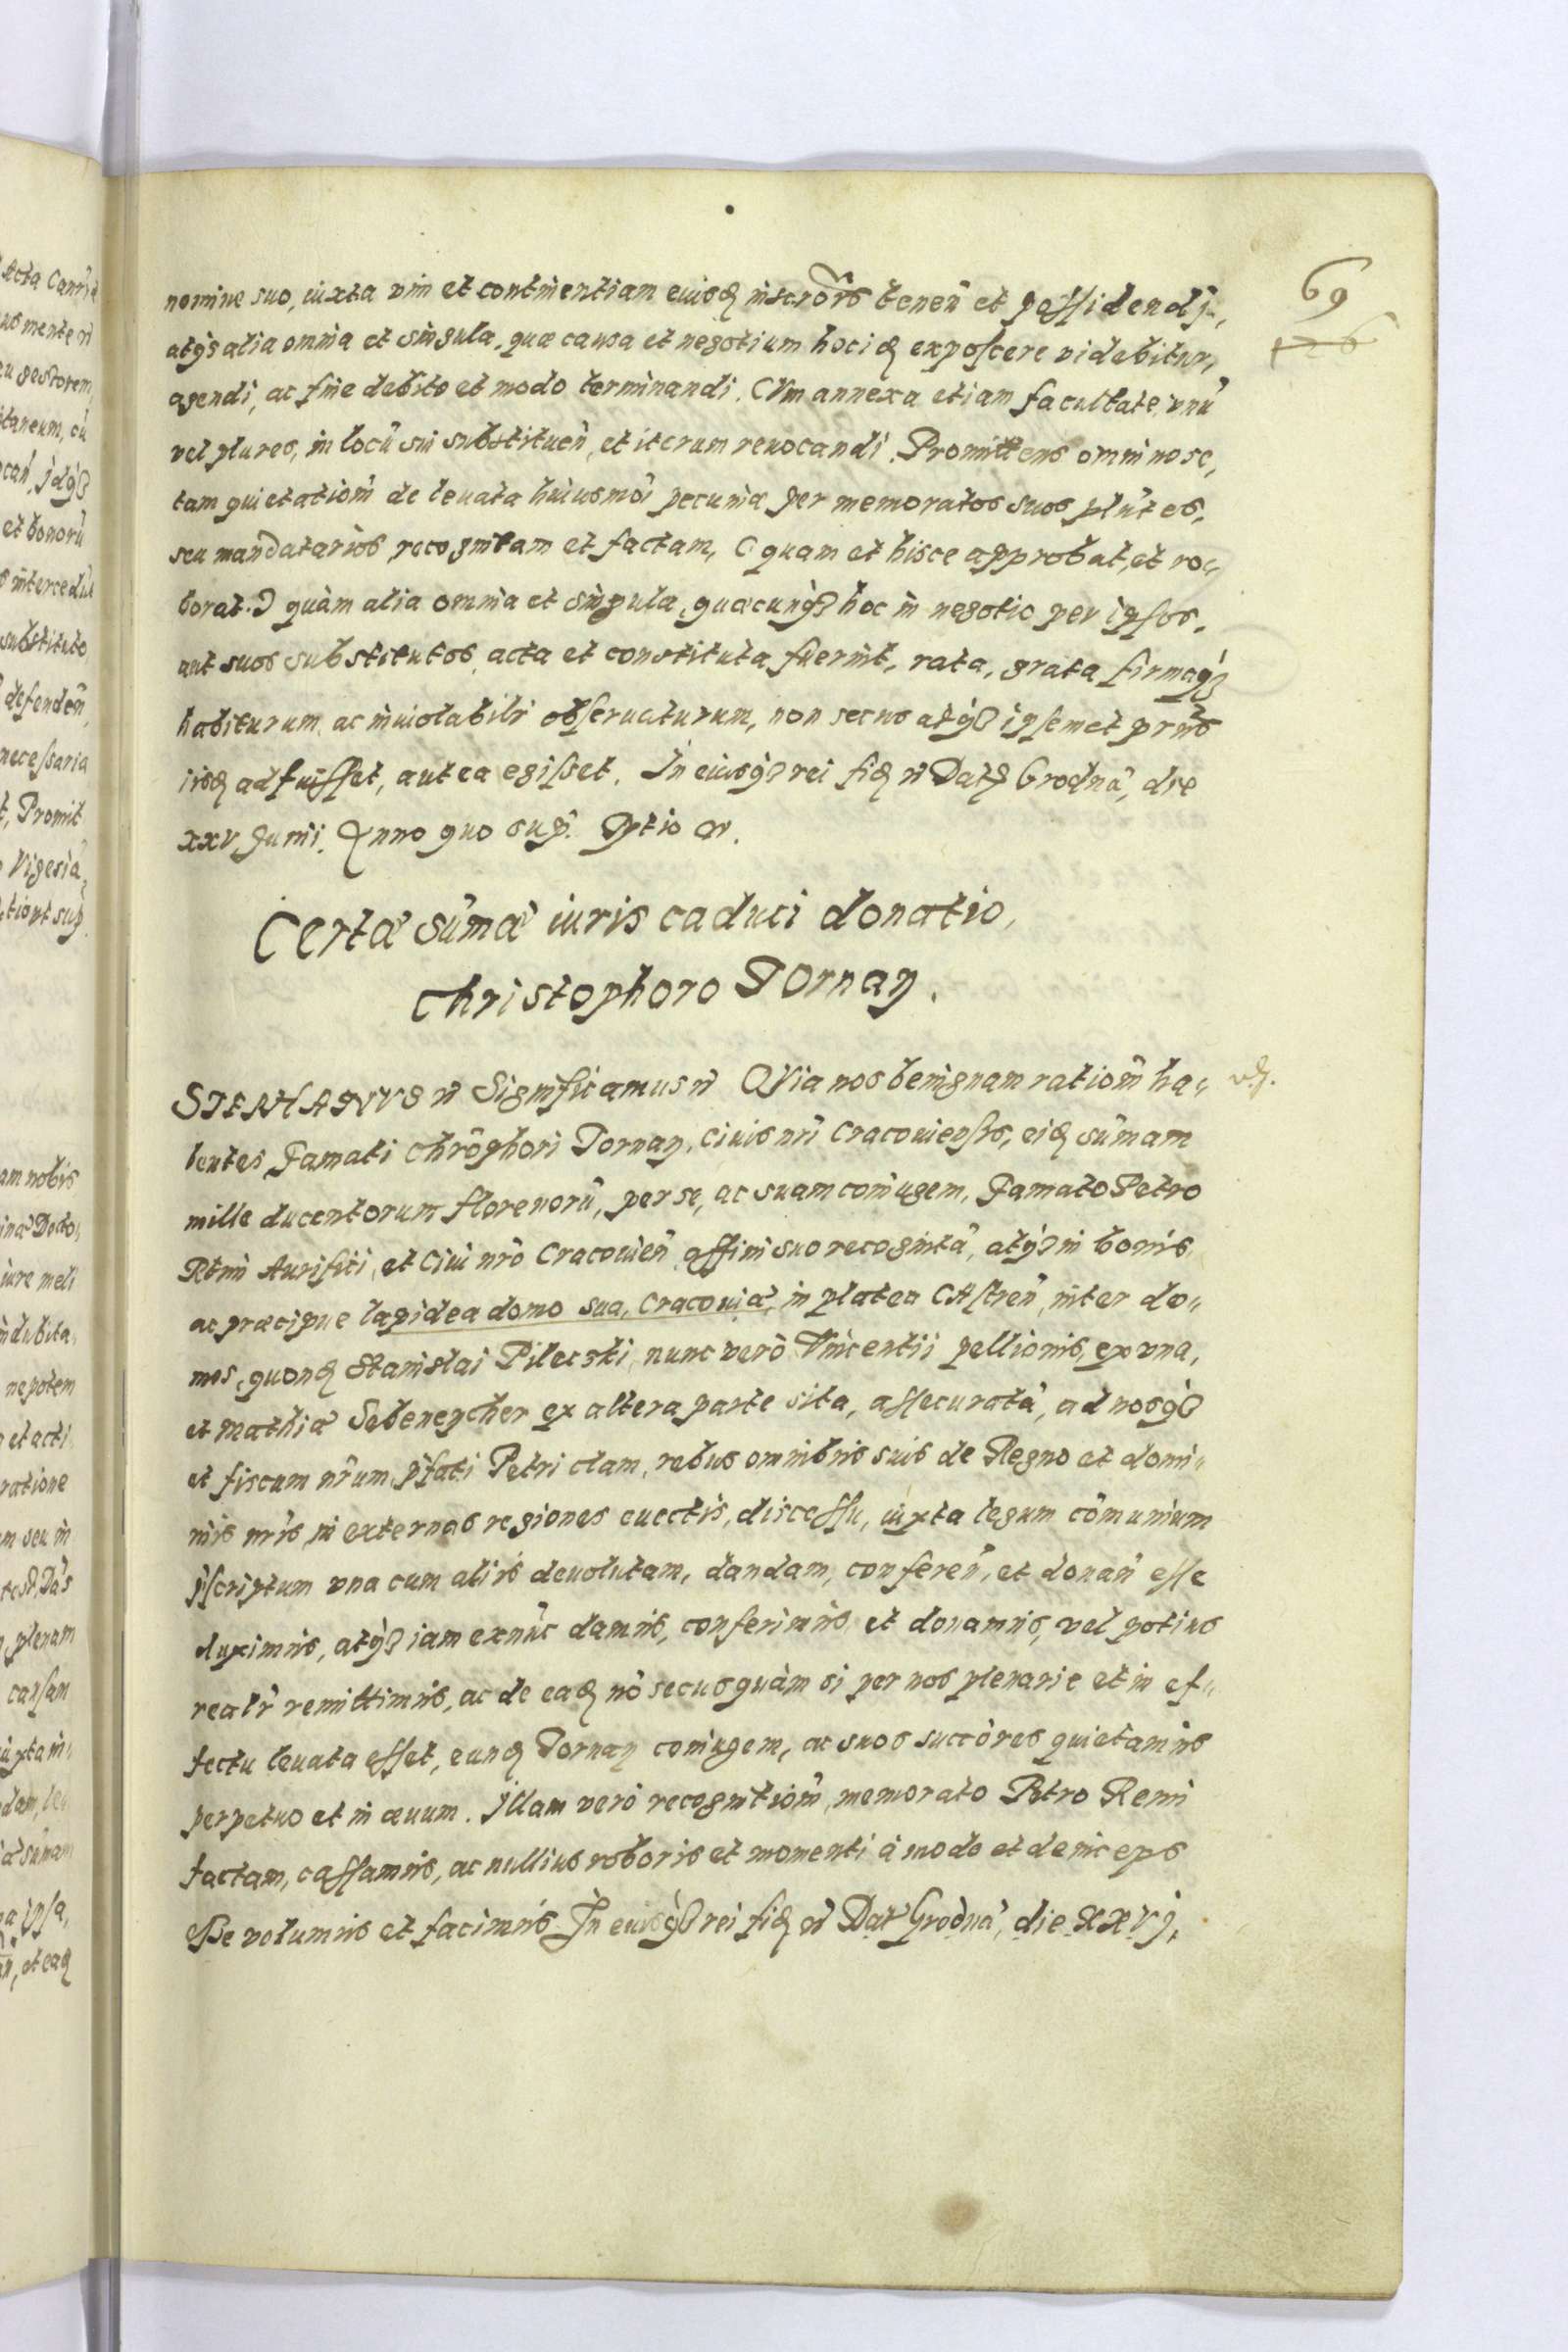 69
126
nomine suo, iuxta vim et continentiam eiusdꝫ inscrõis tenen̄ et possidendj,
atqꝫ alia omnia et singula, quæ causa et negotium hoc idꝫ exposcere videbitur,
agendi, ac fine debito et modo terminandi. CVm annexa etiam facultate, vnū
vel plures, in locū sui substituen̄, et iterum reuocandi. Promittens omnino se,
tam quietationē de leuata huiusmōi pecuniæ per memoratos suos pln̄tes,
seu mandatarios recognitam et factam, (quam et hisce approbat, et ro⸗
borat.) quàm alia omnia et singula, quæcunqꝫ hoc in negotio per ipsos,
aut suos substitutos acta et constituta fuerint, rata, grata firmaqꝫ
habiturum, ac inuiolabilr̄ obseruaturum, non secus atqꝫ ipsemet prn̄s
iisdꝫ adfuisset, aut ea egisset. In cuiusqꝫ rei fidꝫ etc̄ Datꝫ Grodnæ, die
xxv Junii. Anno quo sup̄.
Certæ sūmæ iuris caduci donatio,
Christophoro Tornay.
STEPHANVS etc̄ Significamus etc̄ QVia nos benignam rationē ha⸗
bentes Famati Chrōphori Tornay, Ciuis nr̄i Cracouiensis, eidꝫ sūmam
mille ducentorum florenorū, per se, ac suam coniugem, Famato Petro
Remi Aurifici, et Ciui nr̄o Cracouien̄ affini suo recognitā, atqꝫ in bonis,
ac præcipue lapidea domo sua, Cracouiæ, in platea CAstren̄, inter do⸗
mos, quondꝫ Stanislai Pileczki, nunc verò Vincentii pellionis, ex vna,
et Mathiæ Sebeneycher ex altera parte sita, assecuratā, ad nosqꝫ
et fiscum nr̄um, p̄fati Petri clam, rebus omnibus suis de Regno et domi⸗
niis nr̄is in externas regiones euectis, discessu, iuxta legum cōmunium
p̄scriptum vna cum aliis deuolutam, dandam, conferen̄, et donan̄ esse
duximus, atqꝫ iam exnūc damus, conferimus et donamus, vel potius
realr̄ remittimus, ac de eadꝫ nō secus quàm si per nos plenarie et in ef⸗
fectu leuata esset, eundꝫ Tornay coniugem, ac suos succōres quietamus
perpetuo et in æuum. Illam verò recognitionē, memorato Petro Remi
factam, cassamus, ac nullius roboris et momenti à modo et deinceps
esse volumus et facimus. In cuiusqꝫ rei fidꝫ etc̄ Dat̄ Grodnæ, die XXVj,